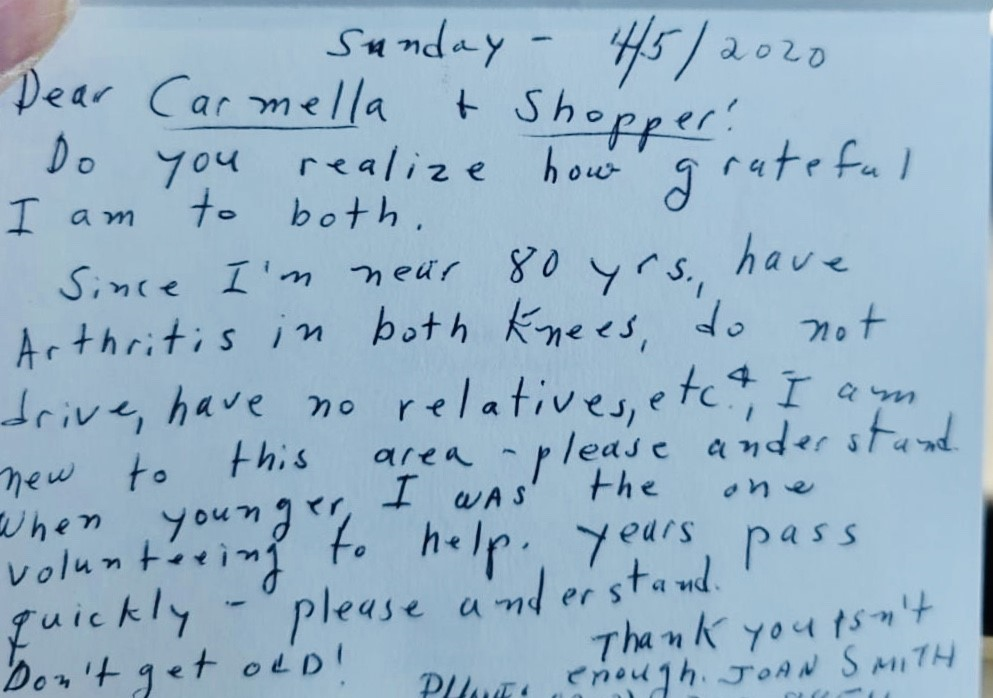 Sunday - 4/5/2020
Dear Carmella + Shopper!
Do you realize how grateful
I am to both.
Since I'm near 80 yrs., have
Arthritis in both Knees, do not
drive, have no relatives, etc. & I am
new to this area - please understand.
When younger, I WAS the one
volunteeing to help. years pass
quickly - please understand.
Don't get OLD!
Thank you isn't
enough. JOAN SMITH